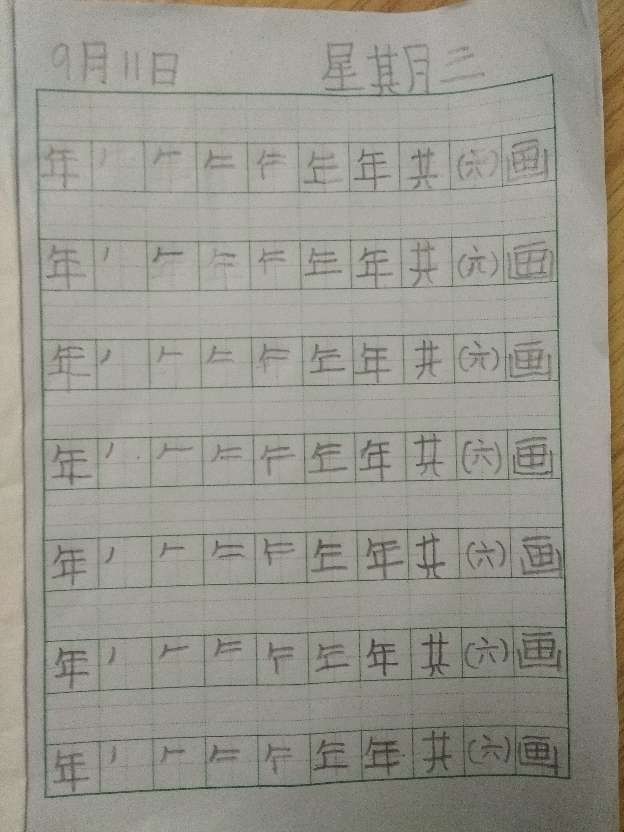 9月11日 星期二
年 丿 𠂉 年 共 (六) 画
年 丿 𠂉 年 共 (六) 画
年 丿 𠂉 年 共 (六) 画
年 丿 𠂉 年 共 (六) 画
年 丿 𠂉 年 共 (六) 画
年 丿 𠂉 年 共 (六) 画
年 丿 𠂉 年 共 (六) 画